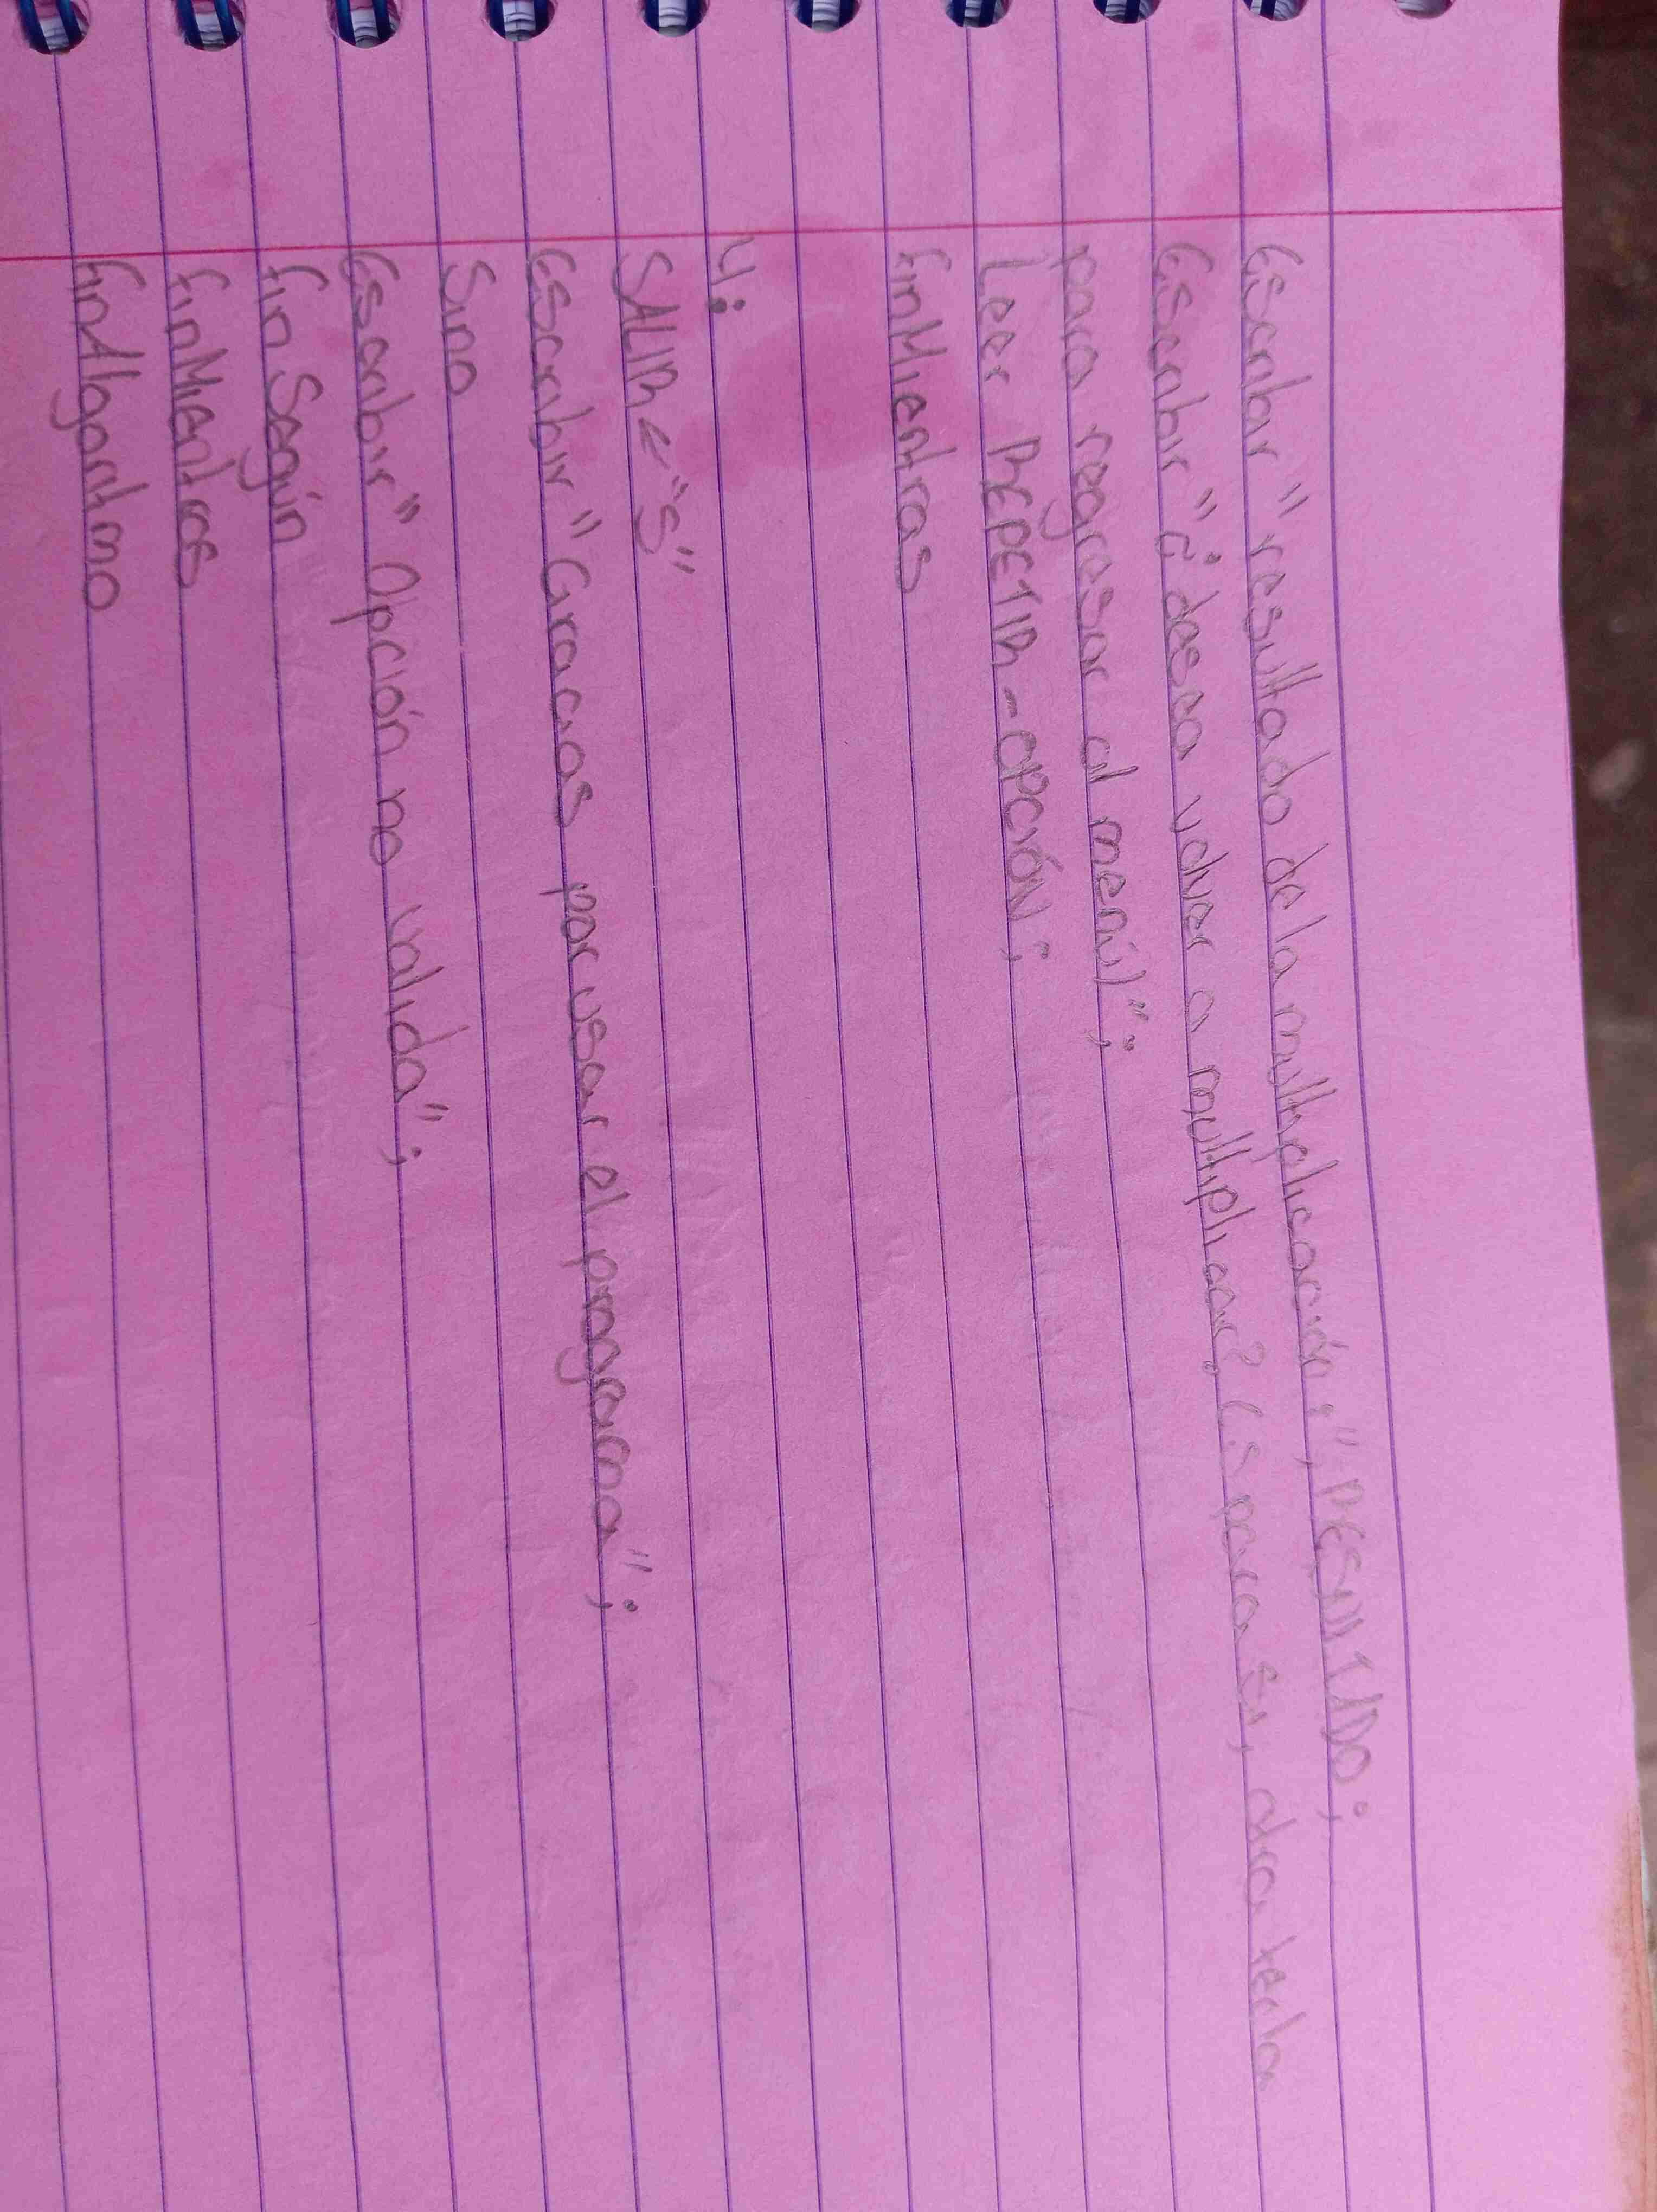 Escribir "resultado de la multiplicación:", RESULTADO;
Escribir "¿desea volver a multiplicar? (s para si, otra tecla
para regresar al menú)";
Leer REPETIR-OPCIÓN;
finMientras
4:
SALIR ← "s"
Escribir "Gracias por usar el programa";
Sino
Escribir "Opción no valida";
finSegún
finMientras
finAlgoritmo